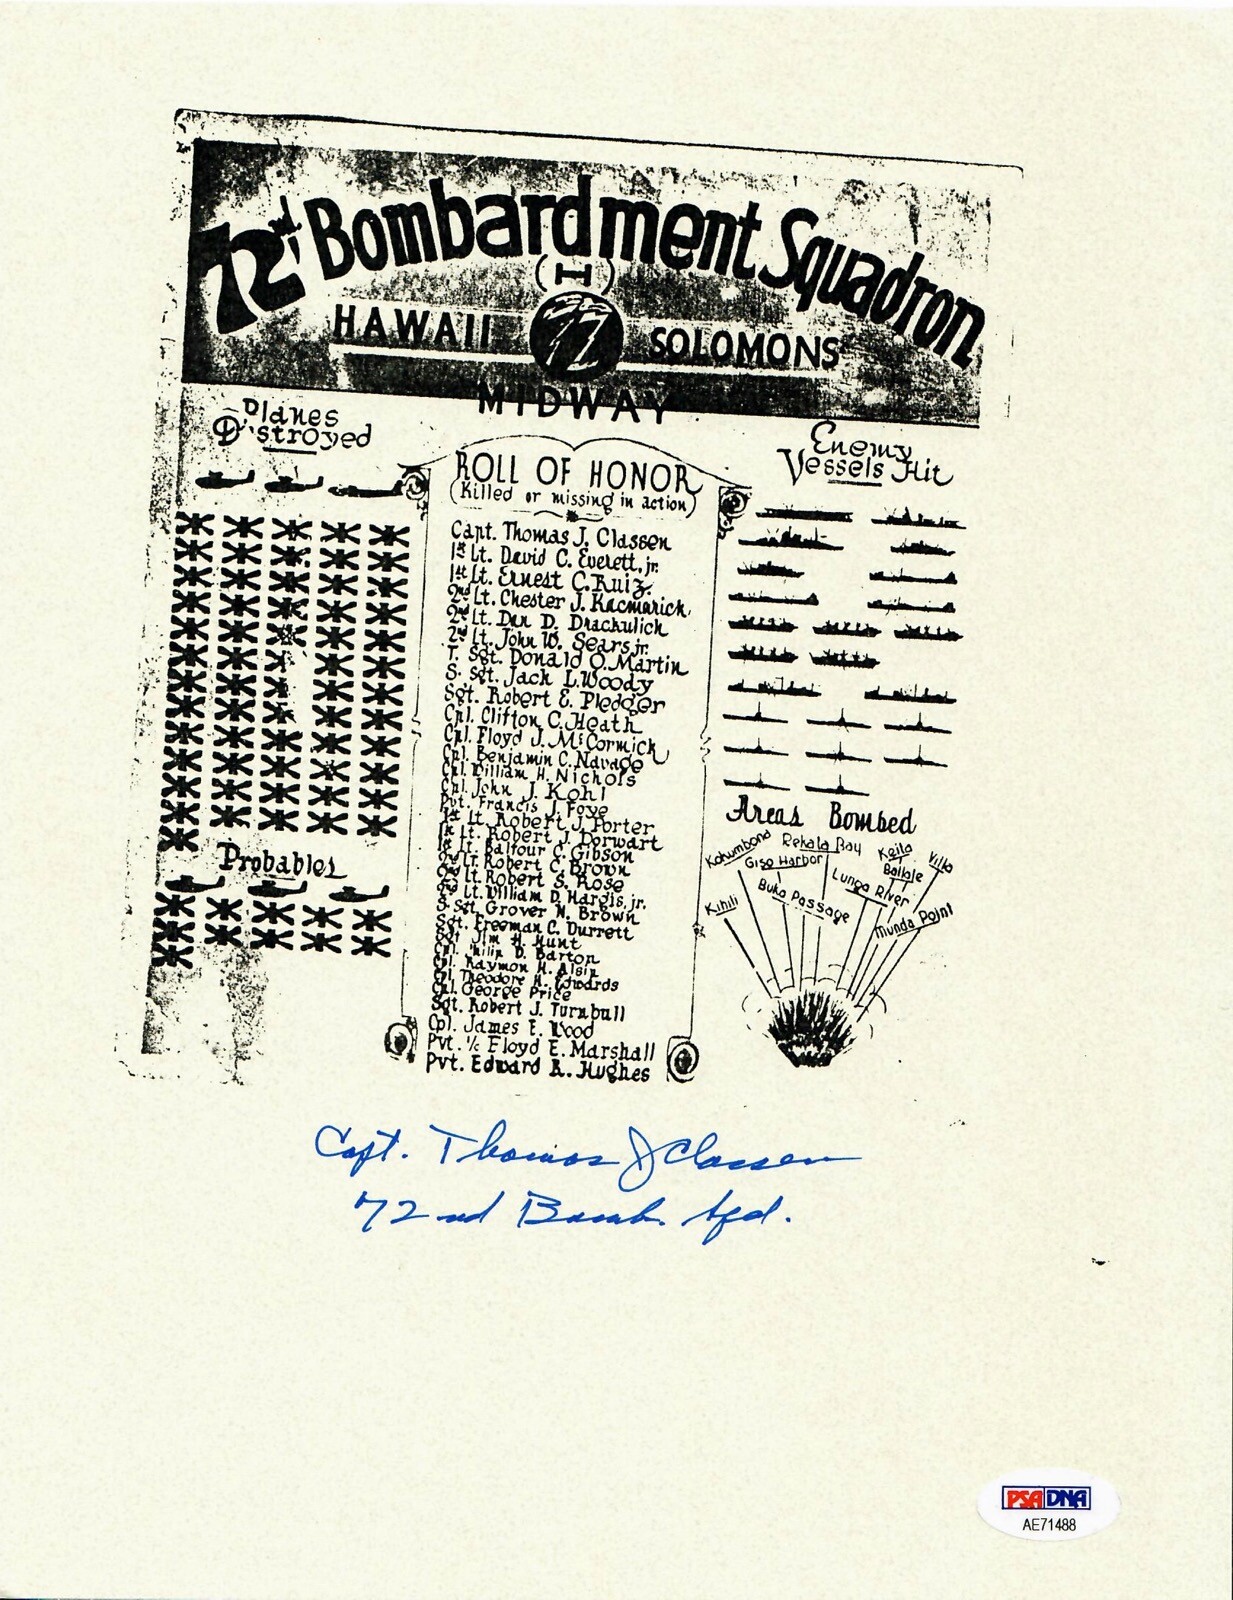 72nd Bombardment Squadron
(H)
72
HAWAII SOLOMONS
MIDWAY
Planes
Destroyed
Enemy
Vessels Hit
ROLL OF HONOR
(Killed or missing in action)
Capt. Thomas J. Classen
1st Lt. David C. Everett, jr.
1st Lt. Ernest C. Ruiz.
2nd Lt. Chester J. Kacmarick
2nd Lt. Dan D. Drachulich
2nd Lt. John W. Sears, jr.
T. Sgt. Donald O. Martin
S. Sgt. Jack L. Woody
Sgt. Robert E. Pledger
Cpl. Clifton C. Heath
Cpl. Floyd J. McCormick
Cpl. Benjamin C. Navage
Cpl. William H. Nichols
Cpl. John J. Kohl
Pvt. Francis J. Foye
1st Lt. Robert J. Porter
1st Lt. Robert J. Dorwart
1st Lt. Balfour C. Gibson
2nd Lt. Robert C. Brown
2nd Lt. Robert S. Rose
2nd Lt. William D. Hargis, jr.
S. Sgt. Grover N. Brown
Sgt. Freeman C. Durrett
Sgt. Jim H. Hunt
Cpl. Philip D. Barton
Cpl. Raymon H. Alsip
Cpl. Theodore H. Edwards
Cpl. George Price
Sgt. Robert J. Turnbull
Cpl. James E. Wood
Pvt. 1/c Floyd E. Marshall
Pvt. Edward R. Hughes
Probables
Areas Bombed
Kahumbona
Rekata Bay
Keila
Villa
Giso Harbor
Ballale
Kihili
Buka Passage
Lunga River
Munda Point
Capt. Thomas J Classen
72nd Bomb. Sqd.
PSA DNA
AE71488